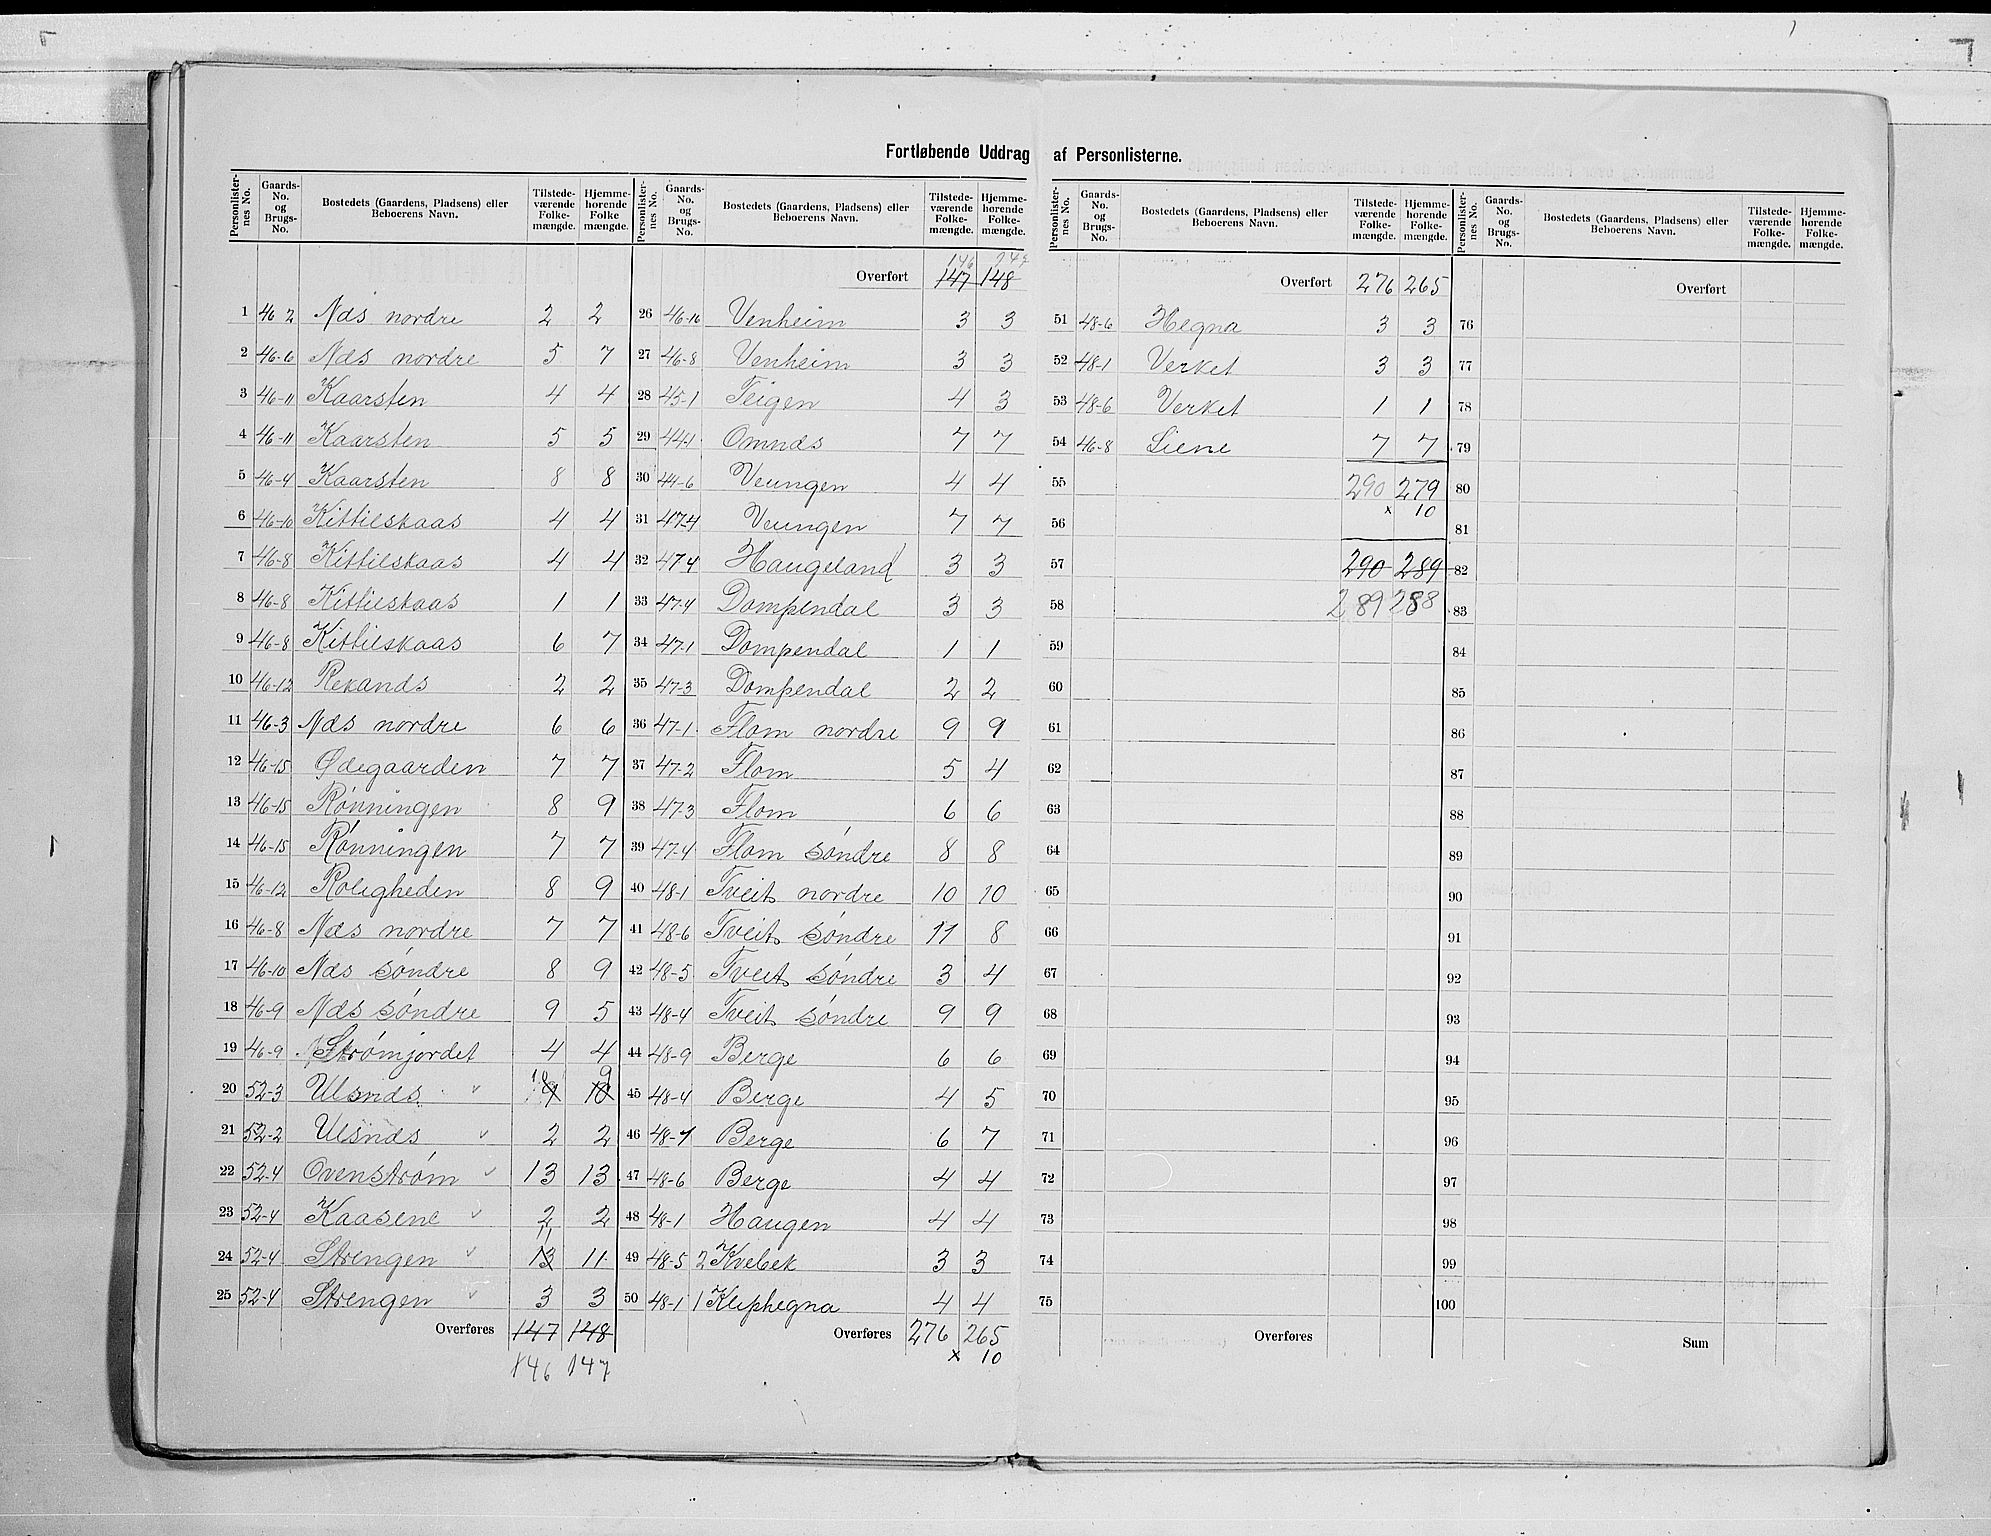 Fortløbende Uddrag af Personlisterne.
Personlister-nes No. Gaards-No. og Brugs-No. Bostedets (Gaardens, Pladsens) eller Beboerens Navn. Tilstede-værende Folke-mængde. Hjemme-hørende Folke mængde.
1 46 2 Næs nordre 2 2
2 46-6 Næs nordre 5 7
3 46-11 Kaarsten 4 4
4 46-11 Kaarsten 5 5
5 46-4 Kaarsten 8 8
6 46-10 Kittilskaas 4 4
7 46-8 Kittilskaas 4 4
8 46-8 Kittilskaas 1 1
9 46-8 Kittilskaas 6 7
10 46-12 Rekands 2 2
11 46-3 Næs nordre 6 6
12 46-15 Ødegaarden 7 7
13 46-15 Rønningen 8 9
14 46-15 Rønningen 7 7
15 46-12 Roligheden 8 9
16 46-8 Næs nordre 7 7
17 46-10 Næs søndre 8 9
18 46-9 Næs søndre 9 5
19 46-9 Strømjordet 4 4
20 52-3 Ulsnæs 9 10 9
21 52-2 Ulsnæs 2 2
22 52-4 Ovenstrøm 13 13
23 52-4 Kaasene 2 2
24 52-4 Strengen 13 11 11
25 52-4 Strengen 3 3
Overføres 147 148
146 147
Personlister-nes No. Gaards-No. og Brugs-No. Bostedets (Gaardens, Pladsens) eller Beboerens Navn. Tilstede-værende Folke-mængde. Hjemme-hørende Folke-mængde.
146
Overført 147 148
26 46-16 Venheim 3 3
27 46-8 Venheim 3 3
28 45-1 Teigen 4 3
29 44-1 Omnæs 7 7
30 44-6 Veungen 4 4
31 47-4 Veungen 7 7
32 47-4 Haugeland 3 3
33 47-4 Dompendal 3 3
34 47-1 Dompendal 1 1
35 47-3 Dompendal 2 2
36 47-1 Flom nordre 9 9
37 47-2 Flom 5 4
38 47-3 Flom 6 6
39 47-4 Flom søndre 8 8
40 48-1 Tveit nordre 10 10
41 48-6 Tveit søndre 11 8
42 48-5 Tveit søndre 3 4
43 48-4 Tveit søndre 9 9
44 48-9 Berge 6 6
45 48-4 Berge 4 5
46 48-7 Berge 6 7
47 48-6 Berge 4 4
48 48-1 Haugen 4 4
49 48-5 2 Kvebek 3 3
50 48-1 1 Kliphegna 4 4
Overføres 276 265
x 10
Personlister-nes No. Gaards-No. og Brugs-No. Bostedets (Gaardens, Pladsens) eller Beboerens Navn. Tilstede-værende Folke-mængde. Hjemme-hørende Folke-mængde.
Overført 276 265
51 48-6 Hegna 3 3
52 48-1 Verket 3 3
53 48-6 Verket 1 1
54 46-8 Liene 7 7
55 290 279
56 x 10
57 290 289
58 289 288
59
60
61
62
63
64
65
66
67
68
69
70
71
72
73
74
75
Overføres
Personlister-nes No. Gaards-No. og Brugs-No. Bostedets (Gaardens, Pladsens) eller Beboerens Navn. Tilstede-værende Folke-mængde. Hjemme-hørende Folke-mængde.
Overført
76
77
78
79
80
81
82
83
84
85
86
87
88
89
90
91
92
93
94
95
96
97
98
99
100
Sum